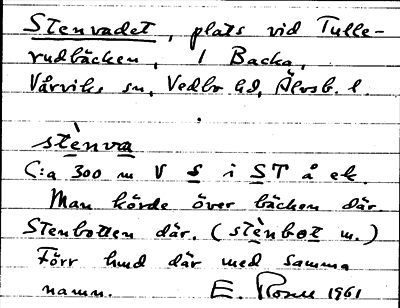 Stenvadet, plats vid Tulle-
rudbäcken, 1 Backa,
Vårviks sn, Vedbo hd, Älvsb. l.
stènva
C:a 300 m V S i ST å ek.
Man körde över bäcken där.
Stenbotten där. (stènbot m.)
Förr hud där med samma
namn. E. Rosell 1961